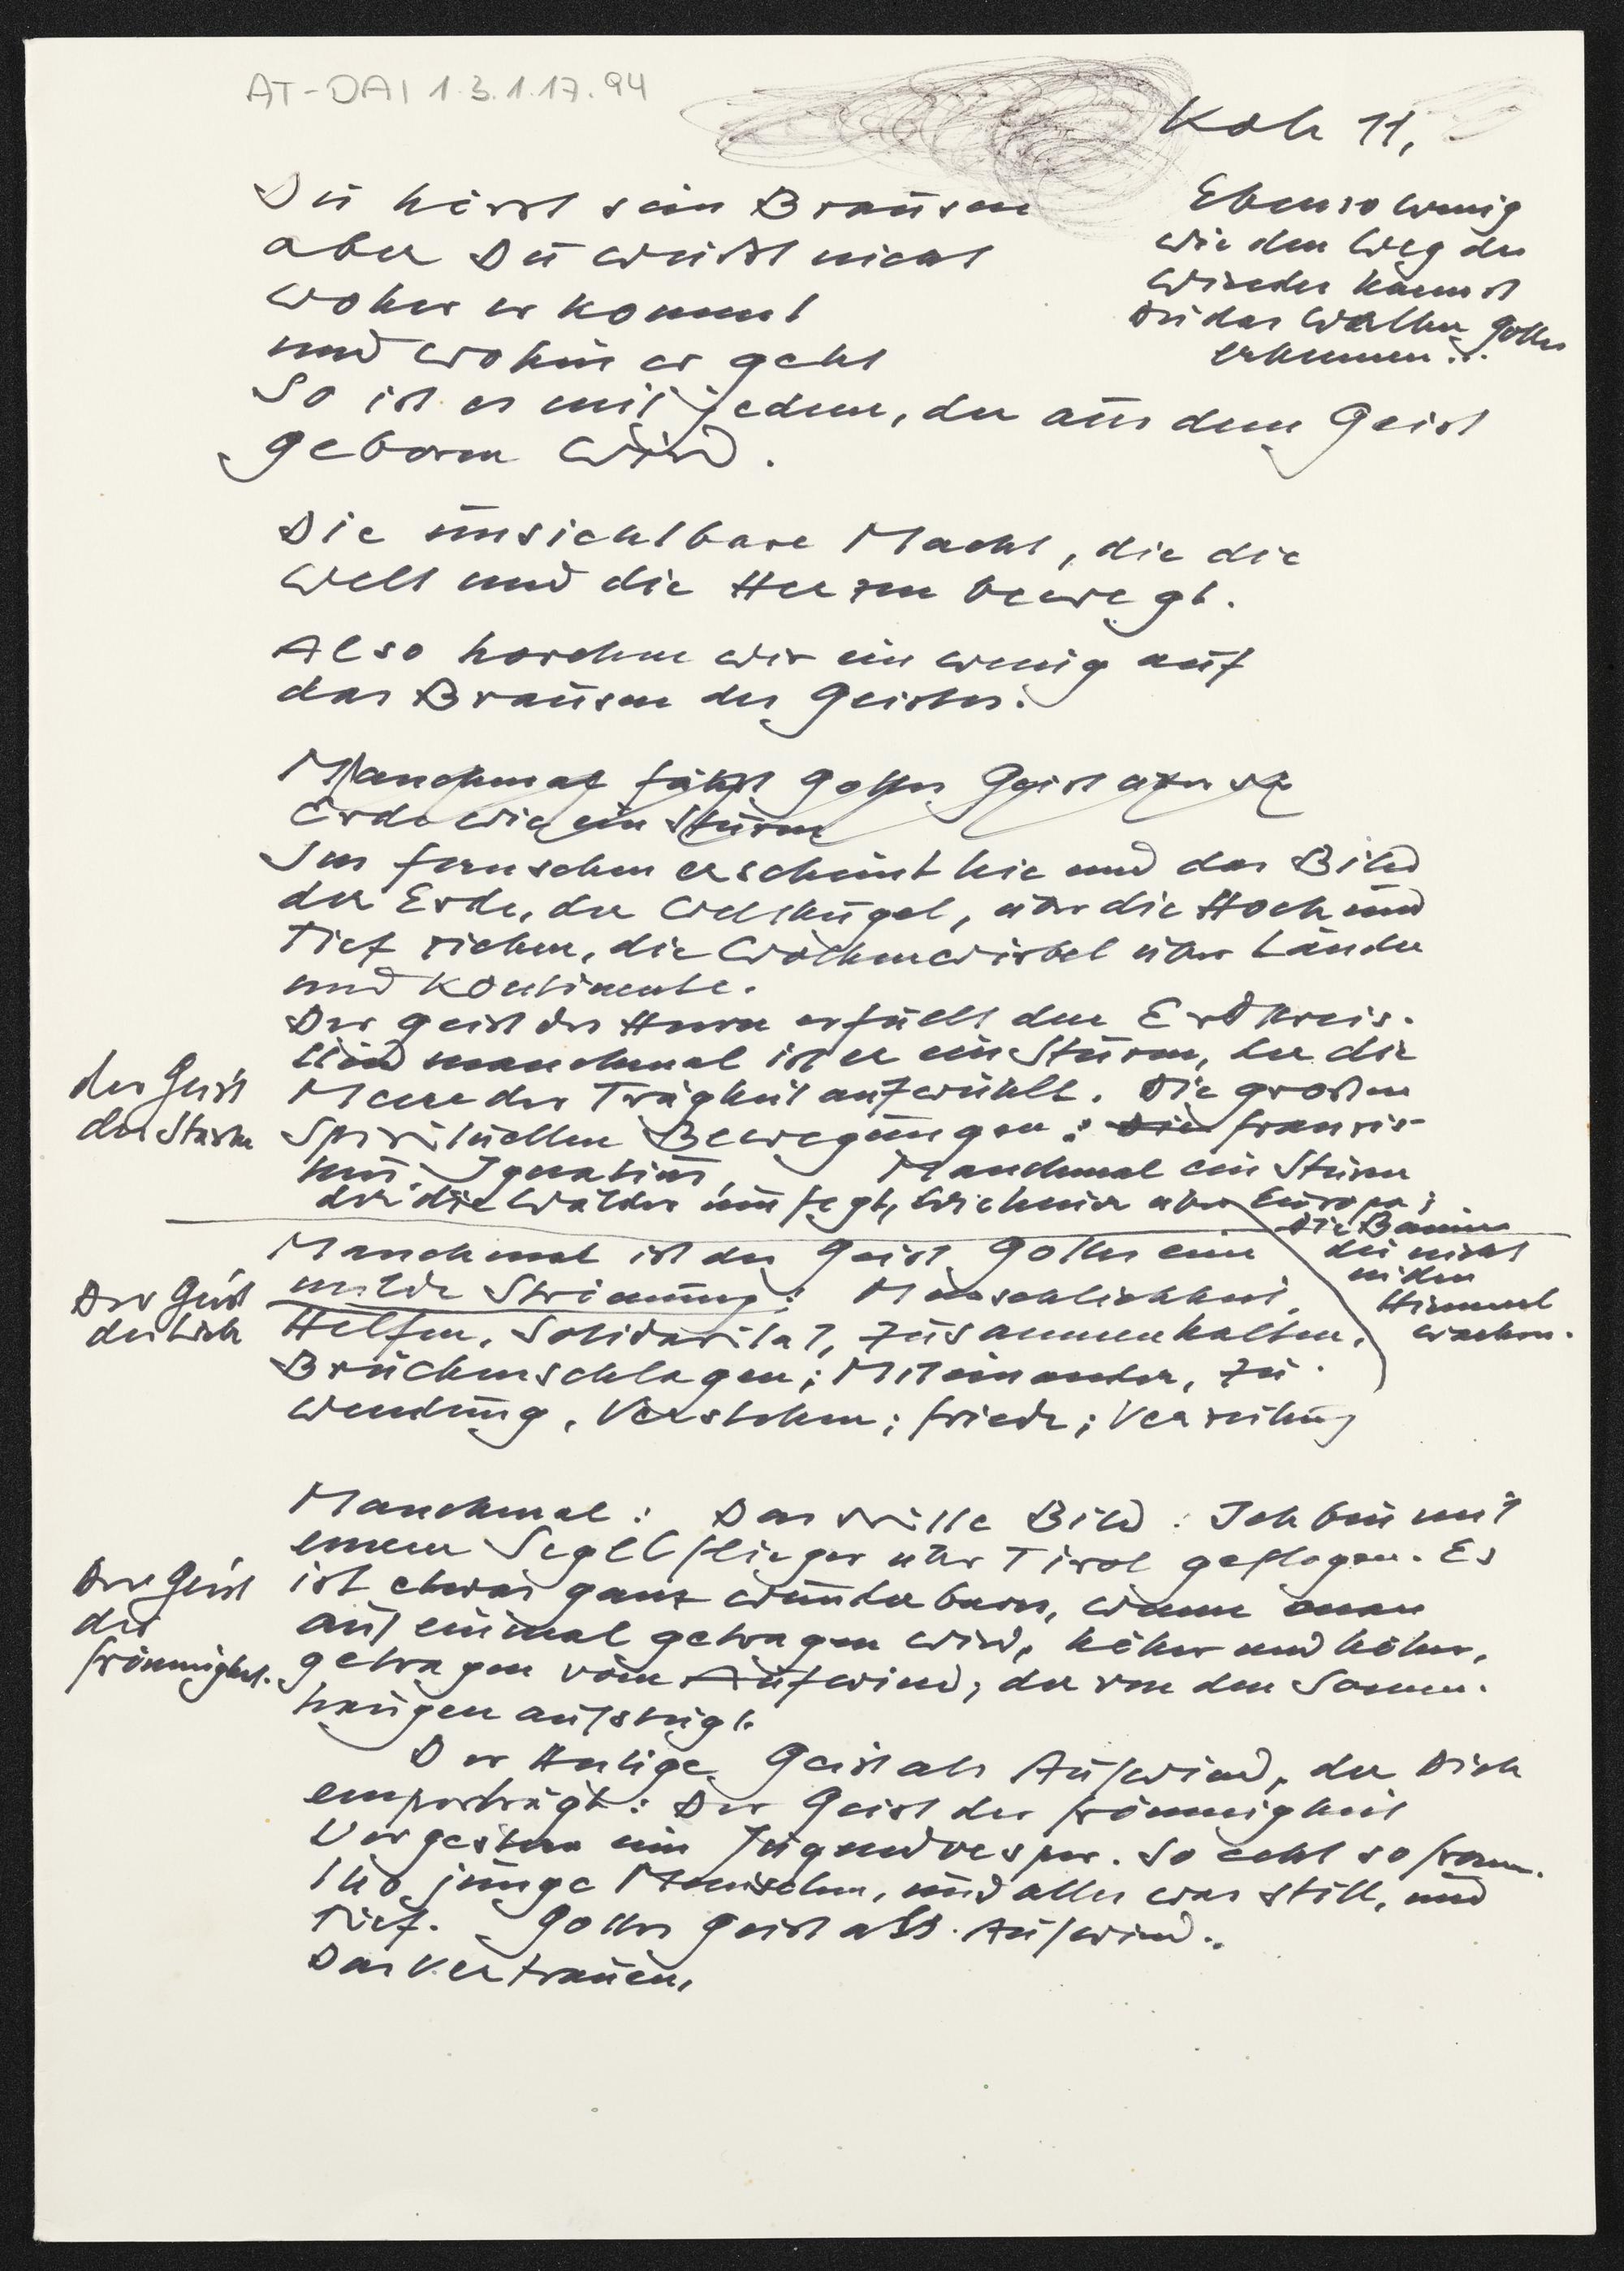 AT-DAI 1.3.1.17.94
Koh 11,
Du hörst sein Brausen
aber Du weißt nicht
woher er kommt
und wohin er geht
So ist es mit jedem, der aus dem Geist
geboren wird.
Ebenso wenig
wie den Weg des
Windes kannst
Du das Walten Gottes
erkennen...
Die unsichtbare Macht, die die
Welt und die Herzen bewegt.
Also horchen wir ein wenig auf
das Brausen des Geistes.
Manchmal fährt Gottes Geist
Erde wie ein Sturm
Im Fernsehen erscheint hie und das Bild
der Erde, der Weltkugel, über die Hoch und
Tief ziehen, die Wolkenwirbel über Länder
und Kontinente.
Der Geist des Herrn erfüllt den Erdkreis.
Und manchmal ist er ein Sturm, der die
der Geist
der Stärke
Meere der Trägheit aufwühlt. Die großen
Spirituellen Bewegungen: Die Franzis-
kus. Ignatius, Manchmal ein Sturm
der die Wälder umfegt, über Europa;
die Bäume
die nicht
in den
Himmel
wachsen.
Manchmal ist der Geist Gottes eine
Der Geist
der Liebe
milde Strömung: Menschlichkeit,
Helfen, Solidarität, Zusammenhalten,
Brückenschlagen; Miteinander, Zu-
wendung, Verstehen; Friede; Verzeihung
Manchmal: Das stille Bild: Ich bin mit
einem Segelflieger über Tirol geflogen. Es
Der Geist
der
Frömmigkeit.
ist etwas ganz wunderbares, wenn man
auf einmal getragen wird, höher und höher,
getragen vom Aufwind, der von den Sonnen-
hängen aufsteigt.
Der Heilige Geist als Aufwind, der Dich
emporträgt: Der Geist der Frömmigkeit
Vorgestern ein Jugendvesper. So echt so fromm.
junge Menschen, und alles war still, und
Tief. Gottes Geist als Aufwind..
Das Vertrauen,